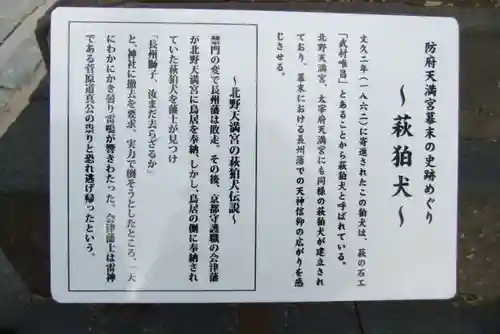 防府天満宮幕末の史跡めぐり
～萩狛犬～
文久二年（一八六二）に寄進されたこの狛犬は、萩の石工
「武村唯昌」とあることから萩狛犬と呼ばれている。
北野天満宮、太宰府天満宮にも同様の萩狛犬が建立され
ており、幕末における長州藩での天神信仰の広がりを感
じさせる。
～北野天満宮の萩狛犬伝説～
禁門の変で長州藩は敗走。その後、京都守護職の会津藩
が北野天満宮に鳥居を奉納。しかし、鳥居の側に奉納され
ていた萩狛犬を藩士が見つけ
「長州獅子、汝まだ去らざるか」
と、神社に撤去を要求、実力で倒そうとしたところ、一天
にわかにかき曇り雷鳴が響きわたった。会津藩士は雷神
である菅原道真公の祟りと恐れ逃げ帰ったという。